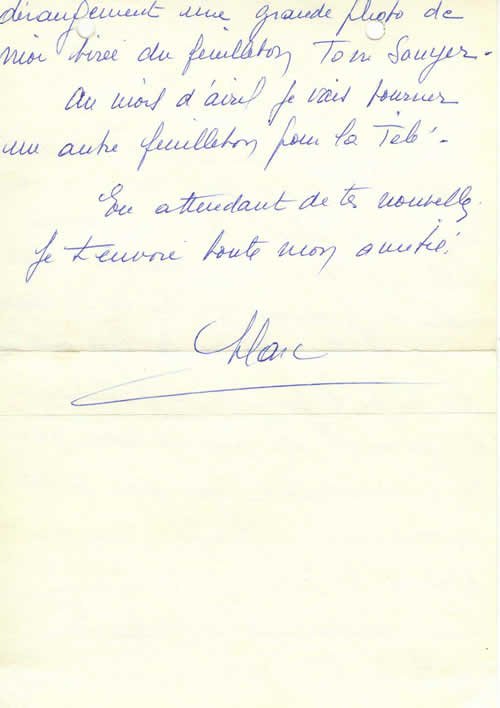 dérangement une grande photo de
moi tirée du feuilleton Tom Sawyer.
Au mois d'avril je vais tourner
un autre feuilleton pour la Télé.
En attendant de tes nouvelles.
Je t'envoie toute mon amitié.
Marc